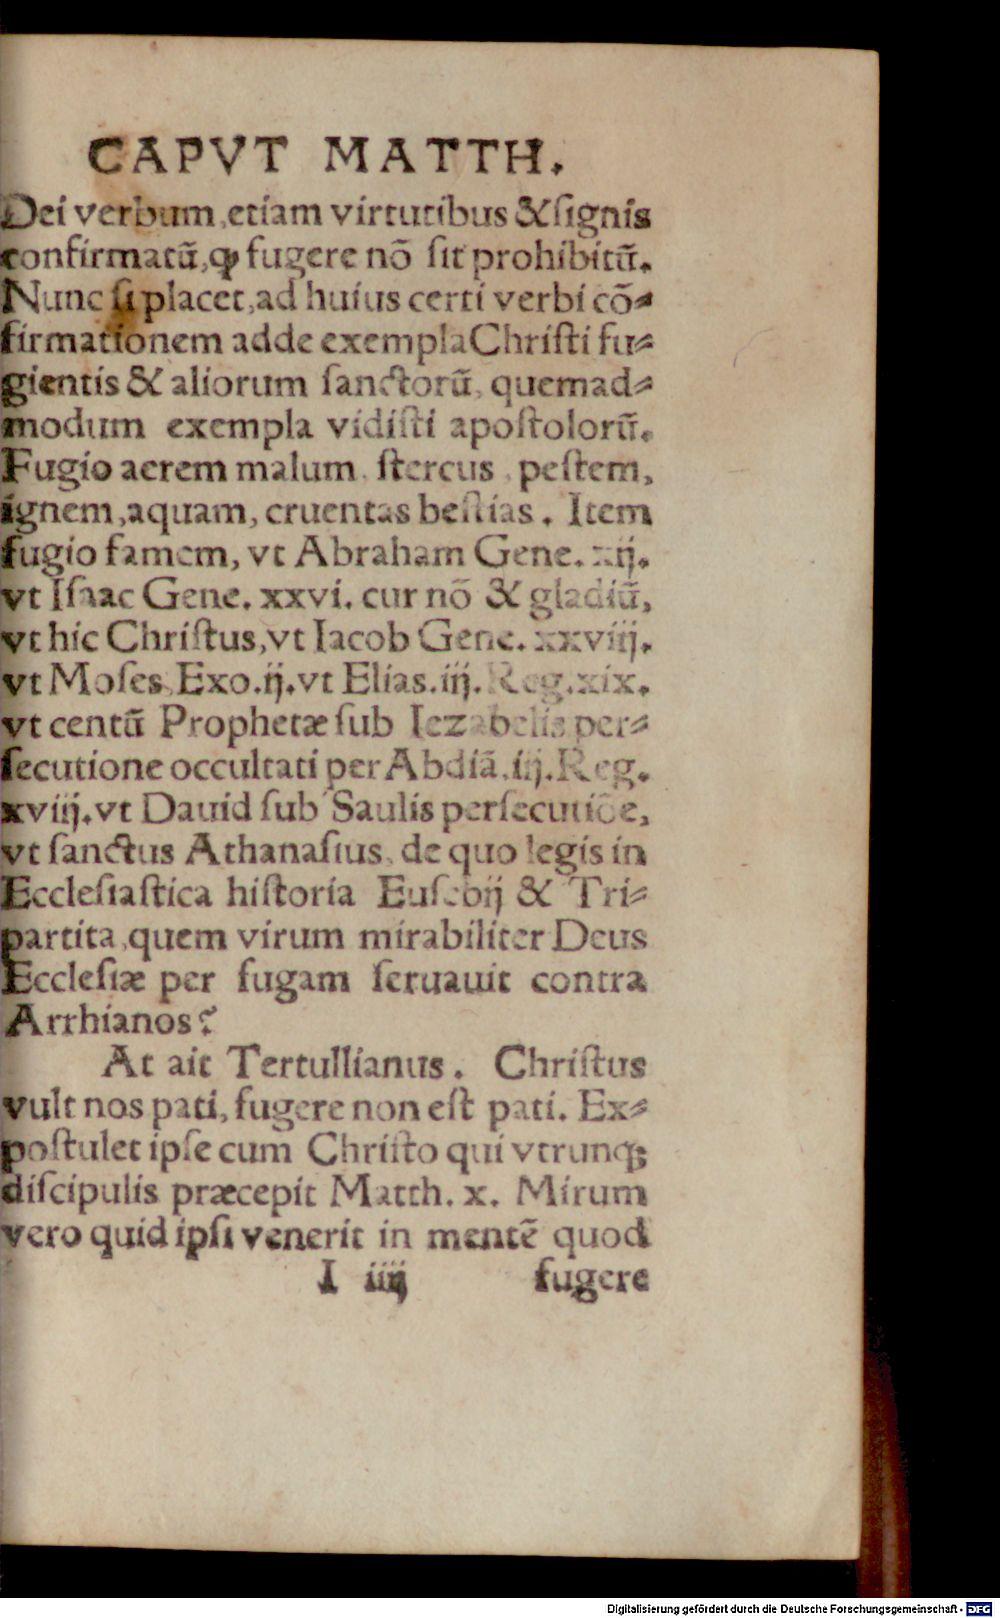 CAPVT MATTH.
Dei verbum, etiam virtutibus & ſignis
confirmatũ, ꝙ fugere nõ ſit prohibitũ.
Nunc ſi placet, ad huius certi verbi cõ-
firmationem adde exempla Chriſti fu-
gientis & aliorum ſanctorũ, quemad-
modum exempla vidiſti apoſtolorũ.
Fugio aerem malum, ſtercus, peſtem,
ignem, aquam, cruentas beſtias. Item
fugio famem, vt Abraham Gene. xij.
vt Iſaac Gene. xxvi. cur nõ & gladiũ,
vt hic Chriſtus, vt Iacob Gene. xxviij.
vt Moſes Exo. ij. vt Elias. iij. Reg. xix.
vt centũ Prophetæ ſub Iezabelis per-
ſecutione occultati per Abdiã. iij. Reg.
xviij. vt Dauid ſub Saulis perſecutiõe,
vt ſanctus Athanaſius, de quo legis in
Eccleſiaſtica hiſtoria Euſebij & Tri-
partita, quem virum mirabiliter Deus
Eccleſiæ per fugam ſeruauit contra
Arrhianos?
At ait Tertullianus. Chriſtus
vult nos pati, fugere non eſt pati. Ex-
poſtulet ipſe cum Chriſto qui vtrunq;
diſcipulis præcepit Matth. x. Mirum
vero quid ipſi venerit in mentẽ quod
I iiij fugere
Digitalisierung gefördert durch die Deutsche Forschungsgemeinschaft - DFG